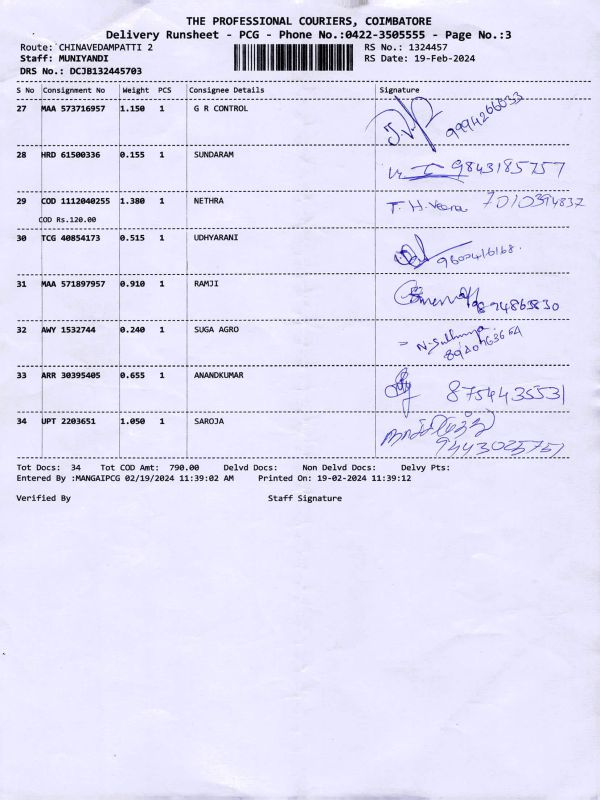 THE PROFESSIONAL COURIERS, COIMBATORE
Delivery Runsheet - PCG - Phone No.:0422-3505555 - Page No.:3
Route: CHINAVEDAMPATTI 2 RS No.: 1324457
Staff: MUNIYANDI RS Date: 19-Feb-2024
DRS No.: DCJB132445703
S No Consignment No Weight PCS Consignee Details Signature
27 MAA 573716957 1.150 1 G R CONTROL
28 HRD 61500336 0.155 1 SUNDARAM 9843185757
29 COD 1112040255 1.380 1 NETHRA T. H. Veena 7010394837
COD Rs.120.00
30 TCG 40854173 0.515 1 UDHYARANI
31 MAA 571897957 0.910 1 RAMJI
32 AWY 1532744 0.240 1 SUGA AGRO
33 ARR 30395405 0.655 1 ANANDKUMAR 8754435531
34 UPT 2203651 1.050 1 SAROJA
9443025751
Tot Docs: 34 Tot COD Amt: 790.00 Delvd Docs: Non Delvd Docs: Delvy Pts:
Entered By :MANGAIPCG 02/19/2024 11:39:02 AM Printed On: 19-02-2024 11:39:12
Verified By Staff Signature